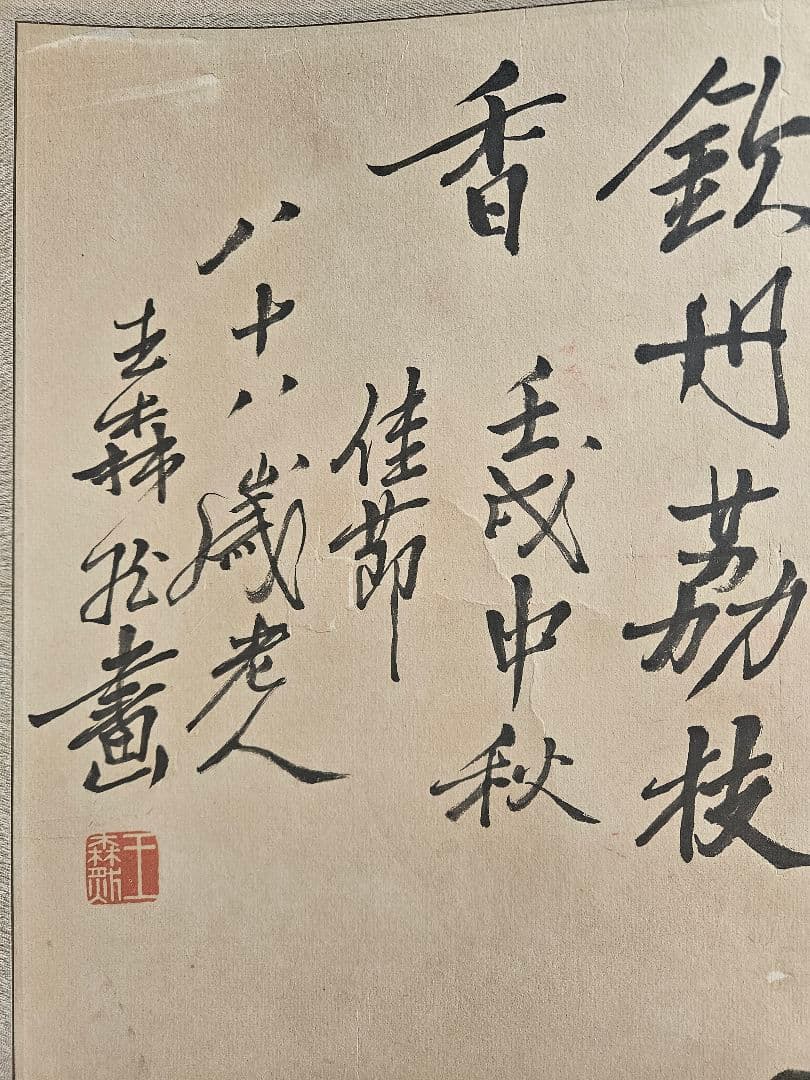 欽州荔枝
香
壬戌中秋
佳節
八十八歲老人
王森然畫
王森然